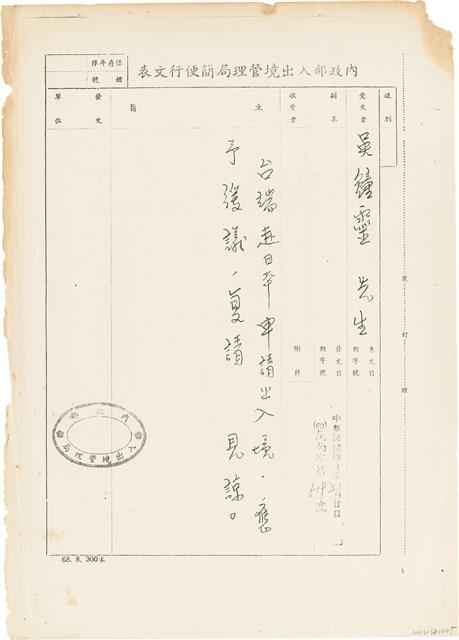 內政部入出境管理局簡便行文表
檔號
保存年限
速別
受文者
吳鐘靈 先生
副本
收受者
來文日期字號
發文日期字號
附件
中華民國
字第
號
主旨
台端赴日本申請出入境，應
予緩議，復請 見諒。
發文單位
內政部
入出境管理局
裝訂線
68. 8. 300本